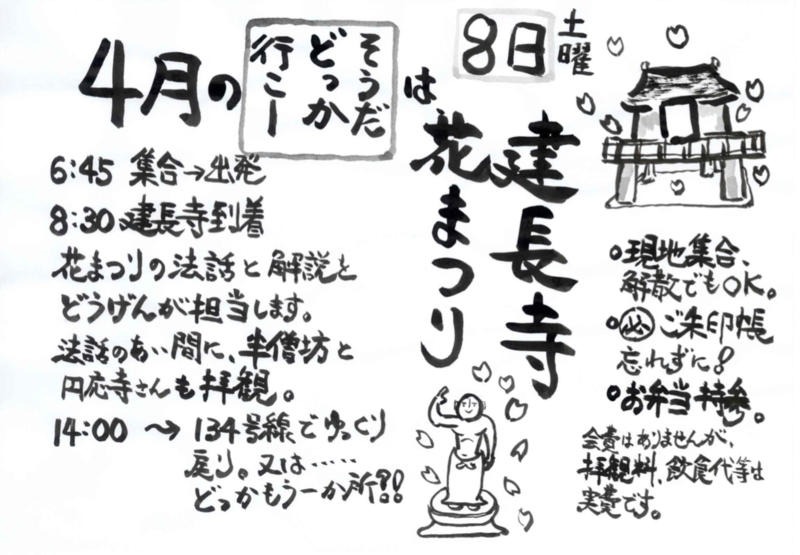 4月の
そうだ
どっか
行こー
は
8日
土曜
建長寺
花まつり
6:45 集合→出発
8:30 建長寺到着
花まつりの法話と解説を
どうげんが担当します。
法話のあい間に、半僧坊と
円応寺さんも拝観。
14:00 〜 134号線でゆっくり
戻り。又は……
どっかもう一か所!?!
・現地集合、
解散でもOK。
・必ご朱印帳
忘れずに!
・お弁当持参。
会費はありませんが、
拝観料、飲食代等は
実費です。